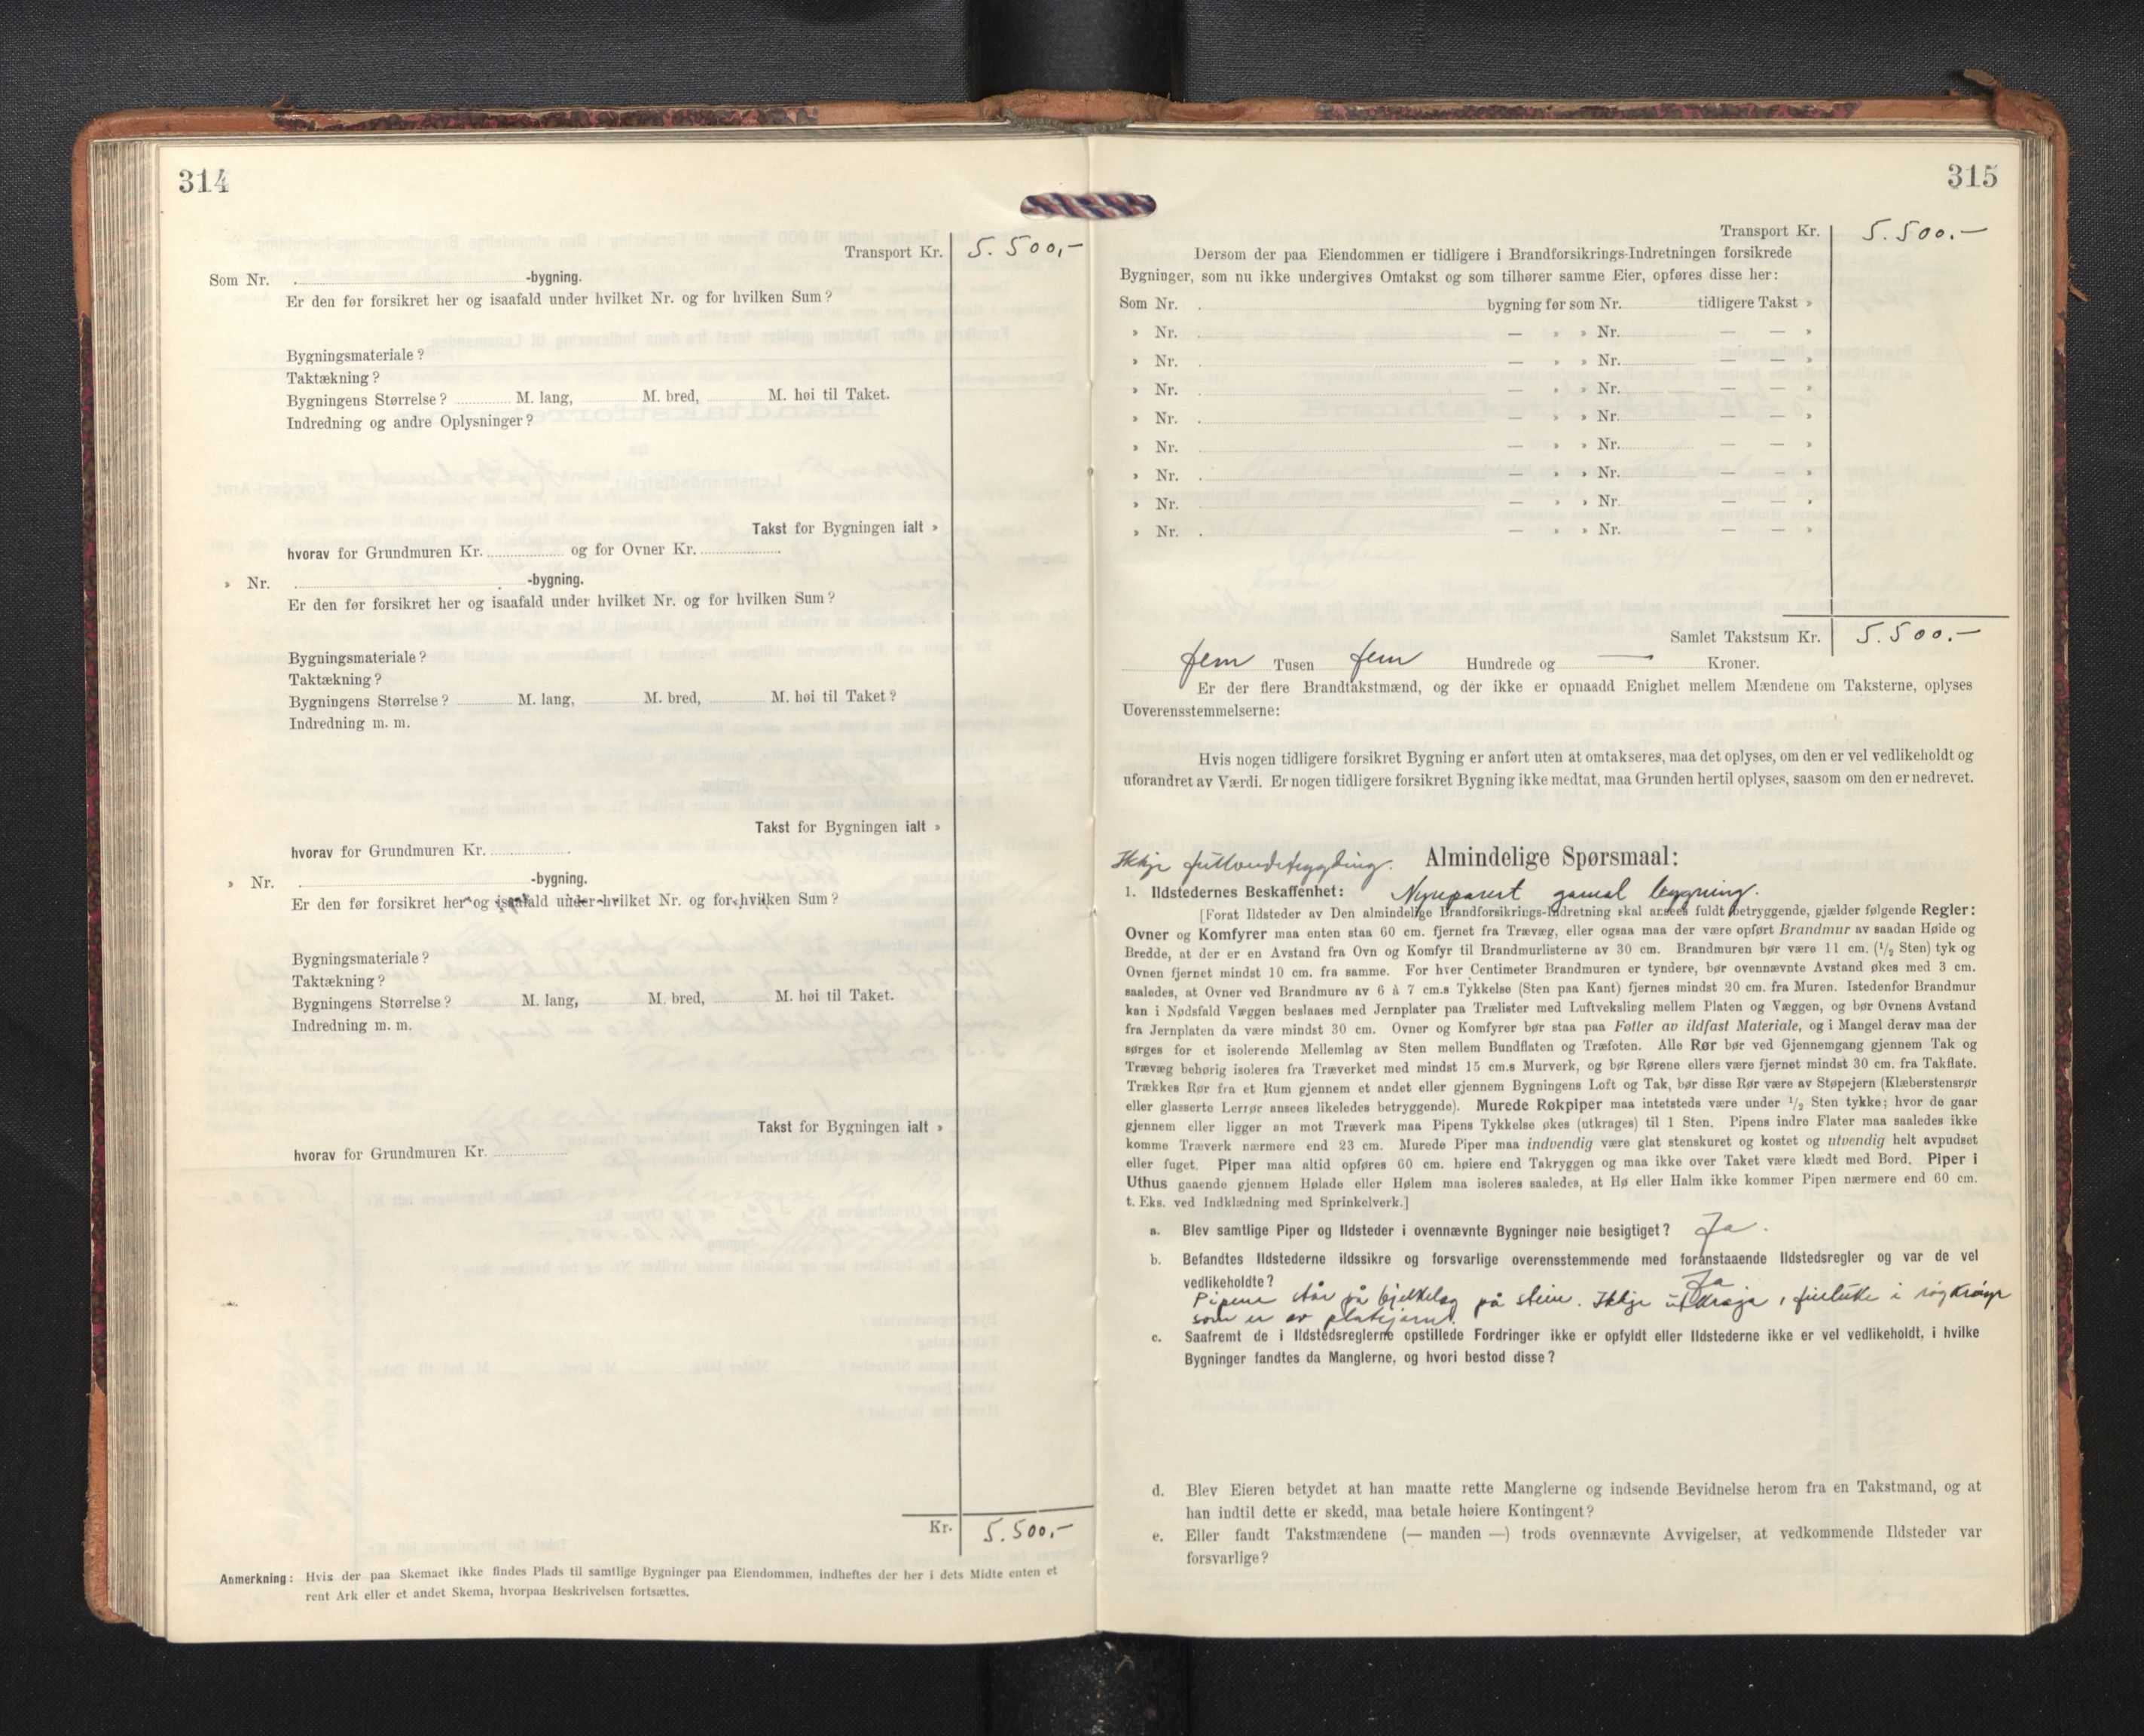 314
Transport Kr. 5.500,-
Som Nr. -bygning.
Er den før forsikret her og isaafald under hvilket Nr. og for hvilken Sum?
Bygningsmateriale?
Taktækning?
Bygningens Størrelse? M. lang, M. bred, M. høi til Taket.
Indredning og andre Oplysninger?
Takst for Bygningen ialt »
hvorav for Grundmuren Kr. og for Ovner Kr.
» Nr. -bygning.
Er den før forsikret her og isaafald under hvilket Nr. og for hvilken Sum?
Bygningsmateriale?
Taktækning?
Bygningens Størrelse? M. lang, M. bred, M. høi til Taket?
Indredning m. m.
Takst for Bygningen ialt »
hvorav for Grundmuren Kr.
» Nr. -bygning.
Er den før forsikret her og isaafald under hvilket Nr. og for hvilken Sum?
Bygningsmateriale?
Taktækning?
Bygningens Størrelse? M. lang, M. bred, M. høi til Taket.
Indredning m. m.
Takst for Bygningen ialt »
hvorav for Grundmuren Kr.
Kr. 5.500,-
Anmerkning: Hvis der paa Skemaet ikke findes Plads til samtlige Bygninger paa Eiendommen, indheftes der her i dets Midte enten et
rent Ark eller et andet Skema, hvorpaa Beskrivelsen fortsættes.
315
Transport Kr. 5.500.-
Dersom der paa Eiendommen er tidligere i Brandforsikrings-Indretningen forsikrede
Bygninger, som nu ikke undergives Omtakst og som tilhører samme Eier, opføres disse her:
Som Nr. bygning før som Nr. tidligere Takst »
» Nr. — » » Nr. — — »
» Nr. — » » Nr. — — »
» Nr. — » » Nr. — — »
» Nr. — » » Nr. — — »
» Nr. — » » Nr. — — »
» Nr. — » » Nr. — — »
» Nr. — » » Nr. — — »
» Nr. — » » Nr. — — »
Samlet Takstsum Kr. 5.500.-
fem Tusen fem Hundrede og — Kroner.
Er der flere Brandtakstmænd, og der ikke er opnaadd Enighet mellem Mændene om Taksterne, oplyses
Uoverensstemmelserne:
Hvis nogen tidligere forsikret Bygning er anført uten at omtakseres, maa det oplyses, om den er vel vedlikeholdt og
uforandret av Værdi. Er nogen tidligere forsikret Bygning ikke medtat, maa Grunden hertil oplyses, saasom om den er nedrevet.
Ikkje Almindelige Spørsmaal:
1. Ildstedernes Beskaffenhet: Nyreparert gamal bygning.
[Forat Ildsteder av Den almindelige Brandforsikrings-Indretning skal ansees fuldt betryggende, gjælder følgende Regler:
Ovner og Komfyrer maa enten staa 60 cm. fjernet fra Trævæg, eller ogsaa maa der være opført Brandmur av saadan Høide og
Bredde, at der er en Avstand fra Ovn og Komfyr til Brandmurlisterne av 30 cm. Brandmuren bør være 11 cm. (1/2 Sten) tyk og
Ovnen fjernet mindst 10 cm. fra samme. For hver Centimeter Brandmuren er tyndere, bør ovennævnte Avstand økes med 3 cm.
saaledes, at Ovner ved Brandmure av 6 à 7 cm.s Tykkelse (Sten paa Kant) fjernes mindst 20 cm. fra Muren. Istedenfor Brandmur
kan i Nødsfald Væggen beslaaes med Jernplater paa Trælister med Luftveksling mellem Platen og Væggen, og bør Ovnens Avstand
fra Jernplaten da være mindst 30 cm. Ovner og Komfyrer bør staa paa Føtter av ildfast Materiale, og i Mangel derav maa der
sørges for et isolerende Mellemlag av Sten mellem Bundflaten og Træfoten. Alle Rør bør ved Gjennemgang gjennem Tak og
Trævæg behørig isoleres fra Træverket med mindst 15 cm.s Murverk, og bør Rørene ellers være fjernet mindst 30 cm. fra Takflate.
Trækkes Rør fra et Rum gjennem et andet eller gjennem Bygningens Loft og Tak, bør disse Rør være av Støpejern (Klæberstensrør
eller glasserte Lerrør ansees likeledes betryggende). Murede Røkpiper maa intetsteds være under 1/2 Sten tykke; hvor de gaar
gjennem eller ligger an mot Træverk maa Pipens Tykkelse økes (utkrages) til 1 Sten. Pipens indre Flater maa saaledes ikke
komme Træverk nærmere end 23 cm. Murede Piper maa indvendig være glat stenskuret og kostet og utvendig helt avpudset
eller fuget. Piper maa altid opføres 60 cm. høiere end Takryggen og maa ikke over Taket være klædt med Bord. Piper i
Uthus gaaende gjennem Hølade eller Hølem maa isoleres saaledes, at Hø eller Halm ikke kommer Pipen nærmere end 60 cm.
t. Eks. ved Indklædning med Sprinkelverk.]
a. Blev samtlige Piper og Ildsteder i ovennævnte Bygninger nøie besigtiget? Ja.
b. Befandtes Ildstederne ildssikre og forsvarlige overensstemmende med foranstaaende Ildstedsregler og var de vel
vedlikeholdte? Ja
Pipene står på bjelkelag på stein. Ikkje i
som er av platejarn.
c. Saafremt de i Ildstedsreglerne opstillede Fordringer ikke er opfyldt eller Ildstederne ikke er vel vedlikeholdt, i hvilke
Bygninger fandtes da Manglerne, og hvori bestod disse?
d. Blev Eieren betydet at han maatte rette Manglerne og indsende Bevidnelse herom fra en Takstmand, og at
han indtil dette er skedd, maa betale høiere Kontingent?
e. Eller fandt Takstmændene (— manden —) trods ovennævnte Avvigelser, at vedkommende Ildsteder var
forsvarlige?